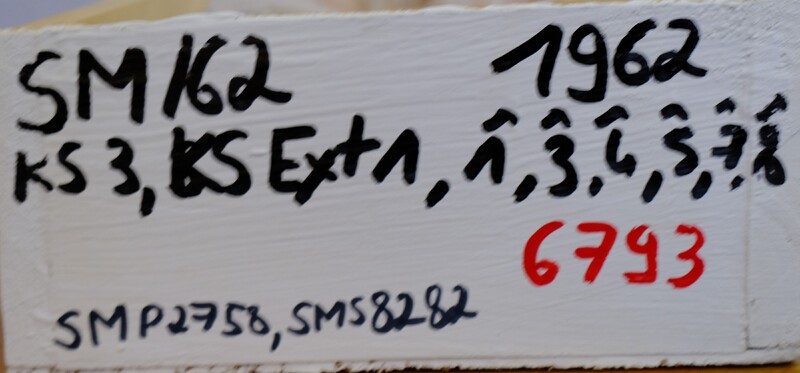 SM162 1962
KS3, KS Ext1, 1̂, 3̂, 4̂, 5̂, 7̂, 8̂
6793
SMP2758, SMS8282